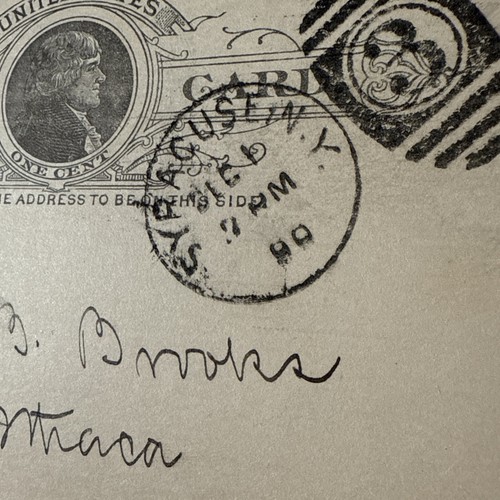 UNITED STATES
CARD
ONE CENT
THE ADDRESS TO BE ON THIS SIDE
SYRACUSE, N.Y.
PM
90
B. Brooks
Ithaca